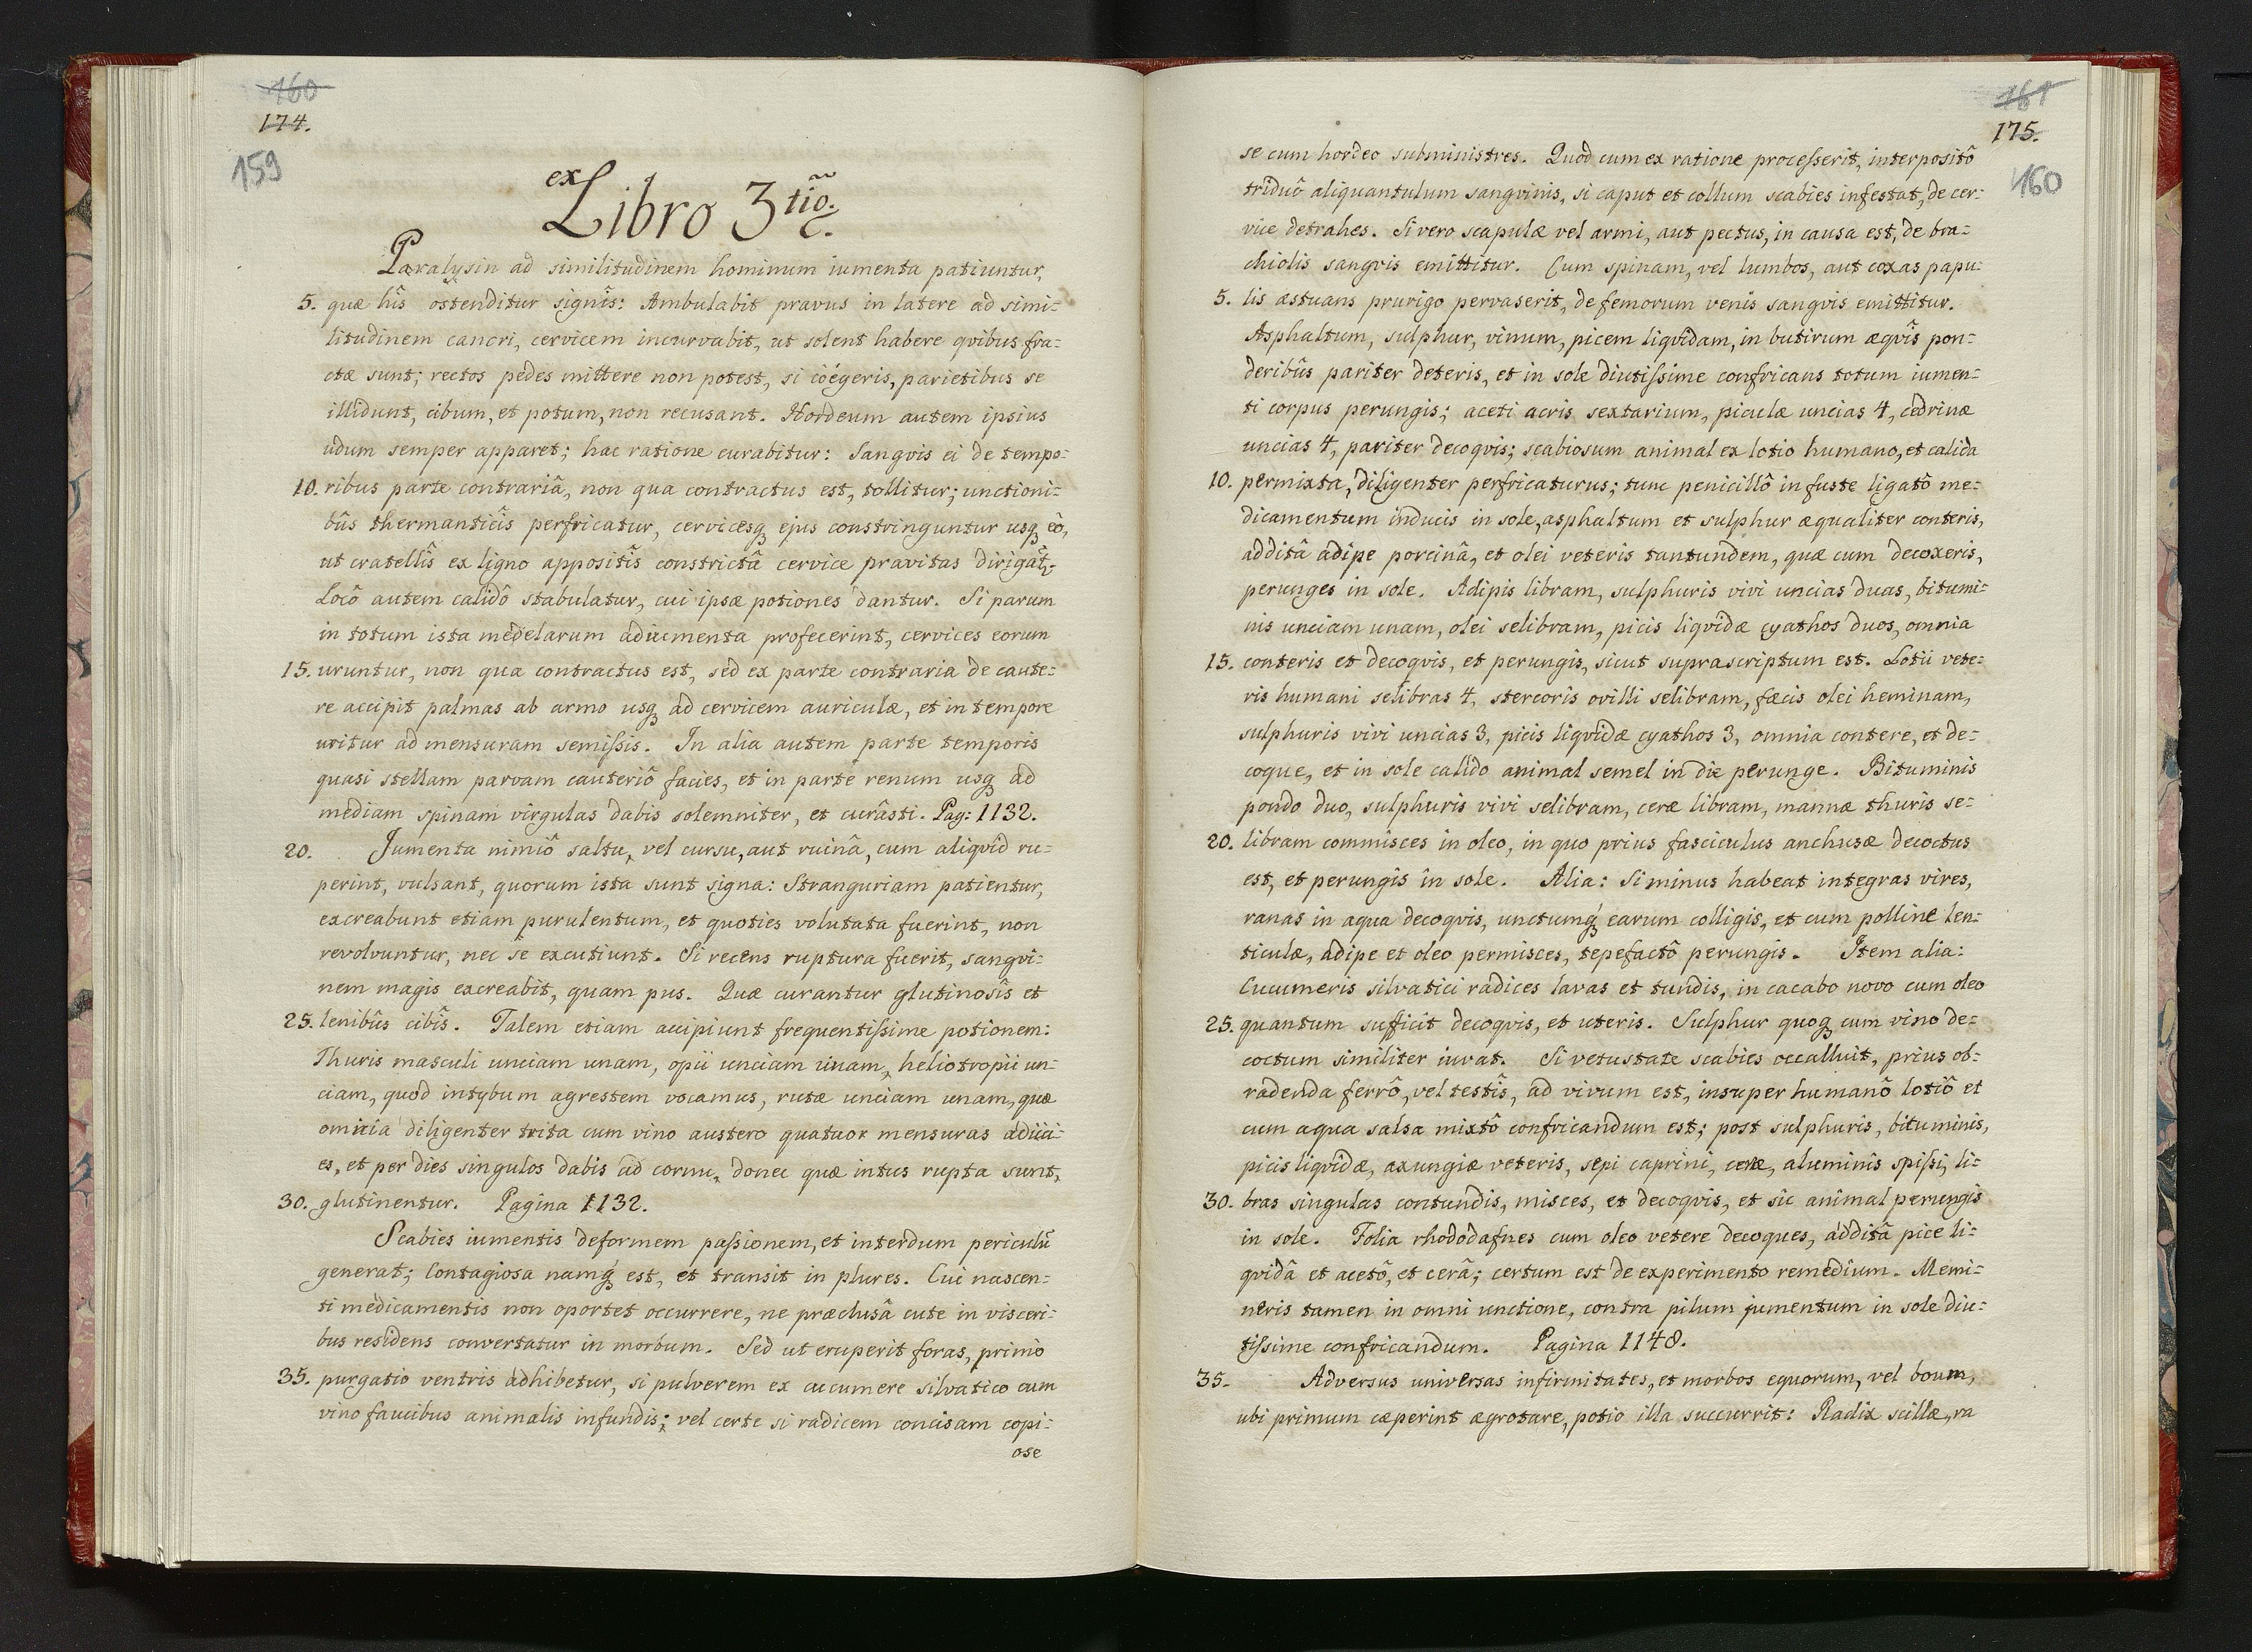 160
174.
159
ex Libro 3tiõ.
Paralysin ad similitudinem hominum iumenta patiuntur,
5. quæ hîs ostenditur signîs: Ambulabit pravus in latere ad simi-
litudinem cancri, cervicem incurvabit, ut solent habere qvibus fra-
ctæ sunt; rectos pedes mittere non potest, si coëgeris, parietibus se
illidunt, cibum, et potum, non recusant. Hordeum autem ipsius
udum semper apparet; hac ratione curabitur: Sangvis ei de tempo-
10. ribus parte contrariâ, non qua contractus est, tollitur; unctioni-
bûs thermanticîs perfricatur, cervicesq ejus constringuntur usq eò,
ut cratellîs ex ligno appositîs constrictâ cervice pravitas dirigat.
Locô autem calidô stabulatur, cui ipsæ potiones dantur. Si parum
in totum ista medelarum adiumenta profecerint, cervices eorum
15. uruntur, non qua contractus est, sed ex parte contraria de caute-
re accipit palmas ab armo usq ad cervicem auriculæ, et in tempore
uritur ad mensuram semissis. In alia autem parte temporis
quasi stellam parvam cauteriô facies, et in parte renum usq ad
mediam spinam virgulas dabis solemniter, et curâsti. Pag: 1132.
20. Jumenta nimiô saltu, vel cursu, aut ruinâ, cum aliqvid ru-
perint, vulsant, quorum ista sunt signa: Stranguriam patientur,
excreabunt etiam purulentum, et quoties volutata fuerint, non
revolvuntur, nec se excutiunt. Si recens ruptura fuerit, sangvi-
nem magis excreabit, quam pus. Quæ curantur glutinosîs et
25. lenibûs cibîs. Talem etiam accipiunt frequentissime potionem:
Thuris masculi unciam unam, opii unciam unam, heliotropii un-
ciam, quod intybum agrestem vocamus, rutæ unciam unam, quæ
omnia diligenter trita cum vino austero quatuor mensuras adiici-
es, et per dies singulos dabis ad cornu, donec quæ intus rupta sunt,
30. glutinentur. Pagina 1132.
Scabies iumentis deformem passionem, et interdum periculũ
generat; Contagiosa namq est, et transit in plures. Cui nascen-
ti medicamentis non oportet occurrere, ne præclusâ cute in visceri-
bus residens convertatur in morbum. Sed ut eruperit foras, primò
35. purgatio ventris adhibetur, si pulverem ex cucumere silvatico cum
vino faucibus animalis infundis; vel certe si radicem concisam copi-
ose
161
175.
160
se cum hordeo subministres. Quod cum ex ratione processerit, interpositô
triduô aliquantulum sangvinis, si caput et collum scabies infestat, de cer-
vice detrahes. Si vero scapulæ vel armi, aut pectus, in causa est, de bra-
chiolis sangvis emittitur. Cum spinam, vel lumbos, aut coxas papu-
5. lis æstuans prurigo pervaserit, de femorum venis sangvis emittitur.
Asphaltum, sulphur, vinum, picem liqvidam, in butirum æqvîs pon-
deribûs pariter deteris, et in sole diutissime confricans totum iumen-
ti corpus perungis; aceti acris sextarium, piculæ uncias 4, cedrinæ
uncias 4, pariter decoqvis; scabiosum animal ex lotio humano, et calida
10. permixta, diligenter perfricaturus; tunc penicillô in fuste ligatô me-
dicamentum inducis in sole, asphaltum et sulphur æqualiter conteris,
additâ adipe porcinâ, et olei veteris tantundem, quæ cum decoxeris,
perunges in sole. Adipis libram, sulphuris vivi uncias duas, bitumi-
nis unciam unam, olei selibram, picis liqvidæ cyathos duos, omnia
15. conteris et decoqvis, et perungis, sicut suprascriptum est. Lotii vete-
ris humani selibras 4, stercoris ovilli selibram, fæcis olei heminam,
sulphuris vivi uncias 3, picis liqvidæ cyathos 3, omnia contere, et de-
coque, et in sole calido animal semel in die perunge. Bituminis
pondo duo, sulphuris vivi selibram, ceræ libram, mannæ thuris se-
20. libram commisces in oleo, in quo prius fasciculus anchusæ decoctus
est, et perungis in sole. Alia: Si minus habeat integras vires,
ranas in aqua decoqvis, unctumq́ earum colligis, et cum polline len-
ticulæ, adipe et oleo permisces, tepefactô perungis. Item alia:
Cucumeris silvatici radices lavas et tundis, in cacabo novo cum oleo
25. quantum sufficit decoqvis, et uteris. Sulphur quoq cum vino de-
coctum similiter iuvat. Si vetustate scabies occalluit, prius ob-
radenda ferrô, vel testîs, ad vivum est, insuper humanô lotiô et
cum aqua salsa mixtô confricandum est; post sulphuris, bituminis,
picis liqvidæ, axungiæ veteris, sepi caprini, ceræ, aluminis spissi, li-
30. bras singulas contundis, misces, et decoqvis, et sic animal perungis
in sole. Folia rhododafnes cum oleo vetere decoques, additâ pice li-
qvidâ et acetô, et cerâ; certum est de experimento remedium. Memi-
neris tamen in omni unctione, contra pilum jumentum in sole diu-
tissime confricandum. Pagina 1148.
35. Adversus universas infirmitates, et morbos equorum, vel boum,
ubi primum cæperint ægrotare, potio illa succurrit: Radix scillæ, ra